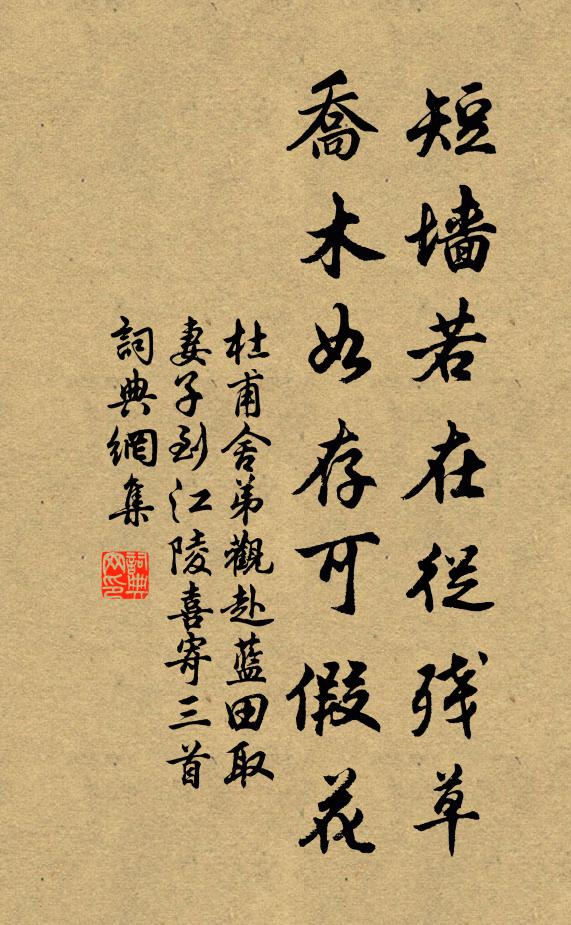 短墙若在從残草
喬木如存可假花
杜甫舍弟觀赴藍田取
妻子到江陵喜寄三首
詞典網集
詞典
网印